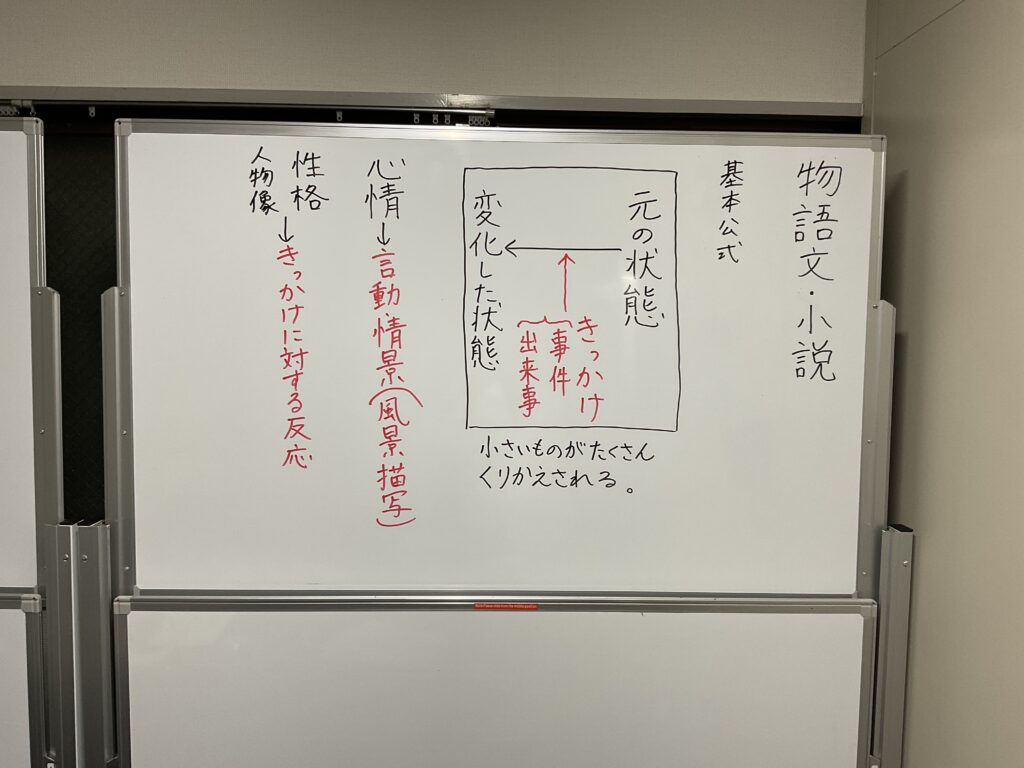 物語文・小説
基本公式
元の状態
きっかけ
事件
出来事
変化した状態
小さいものがたくさん
くりかえされる。
心情→言動、情景(風景描写)
性格
人物像
→きっかけに対する反応